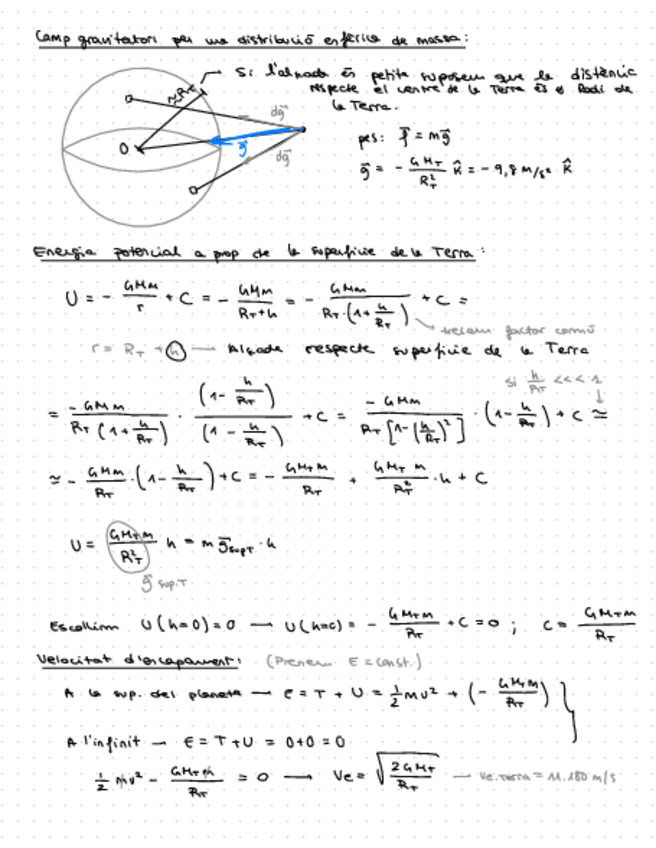 Camp gravitatori per una distribució esfèrica de massa:
Si l'alçada és petita suposem que la distància
respecte el centre de la Terra és el Radi de
la Terra.
≈R_T
dg⃗
O
g⃗
dg⃗
pes: f⃗ = mg⃗
g⃗ = - GM_T/R_T² k̂ = -9,8 m/s² k̂
Energia potencial a prop de la superfície de la Terra:
U = - GMm/r + C = - GMm/(R_T+h) = - GMm/(R_T·(1+h/R_T)) + C =
treiem factor comú
r = R_T + h — Alçada respecte superfície de la Terra
si h/R_T <<< 1
= -GMm/(R_T(1+h/R_T)) · (1-h/R_T)/(1-h/R_T) + C = -GMm/(R_T[1-(h/R_T)²]) · (1-h/R_T) + C ≃
≃ - GMm/R_T · (1-h/R_T) + C = - GM_T m/R_T + GM_T m/R_T² · h + C
U = GM_T m/R_T² h = m g⃗_sup T · h
g⃗ sup.T.
Escollim U(h=0)=0 — U(h=0) = - GM_T m/R_T + C = 0 ; C = GM_T m/R_T
Velocitat d'escapament: (Prenem E = const.)
A la sup. del planeta — E = T + U = ½mv² + (- GM_T m/R_T)
A l'infinit — E = T+U = 0+0 = 0
½ mv² - GM_T m/R_T = 0 — Ve = √(2GM_T/R_T) — Ve.terra = 11.180 m/s